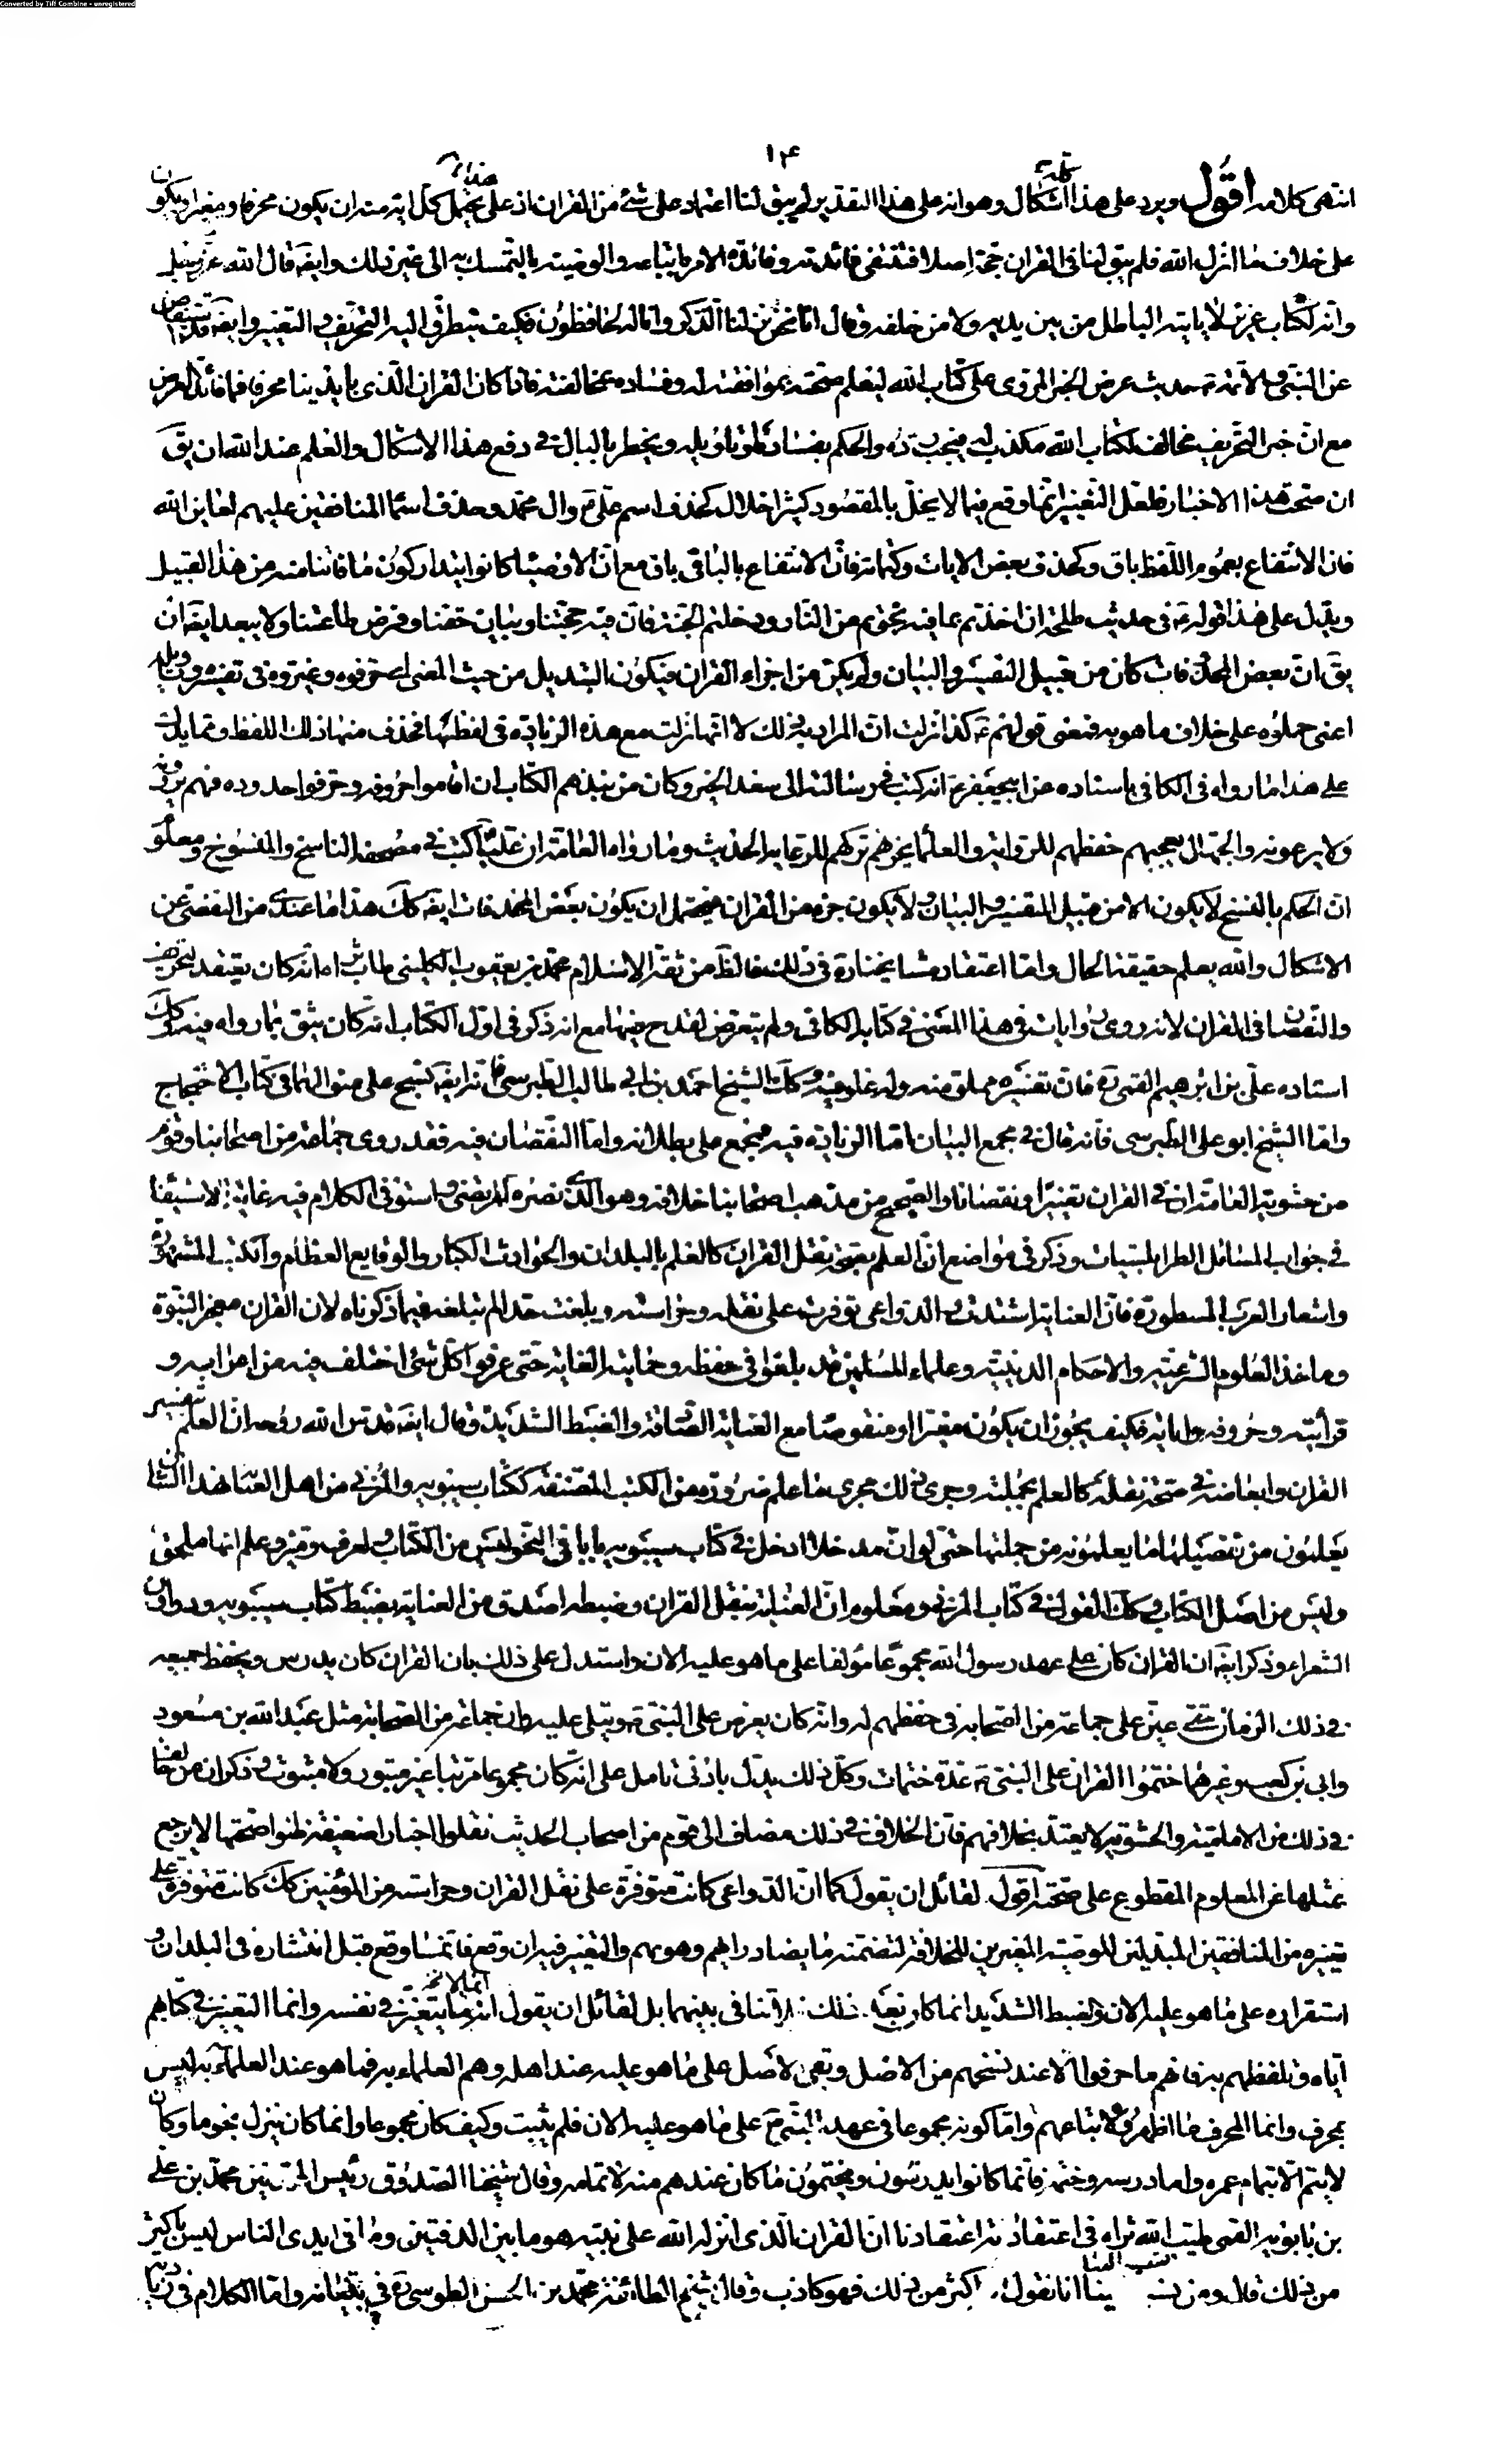 Converted by Tiff Combine - unregistered
١۴
انتهى كلامه اقول ويرد على هذا كله اشكال وهو انه على هذا التقدير لم يبق لنا اعتماد على شئ من القران اذ على هذا يحتمل كل اية منه ان يكون محرفا ومغيرا ويكون
على خلاف ما انزل الله فلم يبق لنا فى القران حجة اصلا فتنتفى فائدته وفائدة الامر باتباعه والوصية بالتمسك به الى غير ذلك وايضَ قال الله عز وجل
وانه لكتاب عزيز لا ياتيه الباطل من بين يديه ولا من خلفه وقال انا نحن نزلنا الذكر وانا له لحافظون فكيف يتطرق اليه التحريف والتغيير وايضَ قد استفاض
عن النبى والائمة حديث عرض الخبر المروى على كتاب الله ليعلم صحته بموافقته له وفساده بمخالفته فاذا كان القران الذى بايدينا محرفا فما فائدة العرض
مع ان خبر التحريف مخالف لكتاب الله مكذب له فيجب رده والحكم بفساده او تاويله ويخطر بالبال فى دفع هذا الاشكال والعلم عند الله ان يقَ
ان صحت هذه الاخبار فلعل التغيير انما وقع فيما لا يخل بالمقصود كثير اخلال كحذف اسم على وال محمد وحذف اسماء المنافقين عليهم لعاين الله
فان الانتفاع بعموم اللفظ باق وكحذف بعض الايات وكتمانه فان الانتفاع بالباقى باق مع ان الاوصياء كانوا يتداركون ما فاتنا منه من هذا القبيل
ويدل على هذا قوله ع فى حديث طلحة ان اخذتم بما فيه نجوتم من النار ودخلتم الجنة فان فيه حجتنا وبيان حقنا وفرض طاعتنا ولا يبعد ايضَ ان
يقَ ان بعض المحذوفات كان من قبيل التفسير والبيان ولم يكن من اجزاء القران فيكون التبديل من حيث المعنى اى حرفوه وغيروه فى تفسيره وتاويله
اعنى حملوه على خلاف ما هو به فمعنى قولهم ع كذا نزلت ان المراد به ذلك لا انها نزلت مع هذه الزيادة فى لفظها فحذف منها ذلك اللفظ ومما يدل
على هذا ما رواه فى الكافى باسناده عن ابيجعفر ع انه كتب فى رسالته الى سعد الخير وكان من نبذهم الكتاب ان اقاموا حروفه وحرفوا حدوده فهم يروونه
ولا يرعونه والجهال يعجبهم حفظهم للرواية والعلماء يحزنهم تركهم للرعاية الحديث وما رواه العامة ان عليا كتب فى مصحفه الناسخ والمنسوخ ومعلوم
ان الحكم بالنسخ لا يكون الا من قبيل التفسير والبيان ولا يكون جزء من القران فيحتمل ان يكون بعض المحذوفات ايضَ كك هذا ما عندى من التفصى عن
الاشكال والله يعلم حقيقة الحال واما اعتقاد مشايخنا ره فى ذلك فالظَ من ثقة الاسلام محمد بن يعقوب الكلينى طاب ثراه انه كان يعتقد التحريف
والنقصان فى القران لانه روى روايات فى هذا المعنى فى كتابه الكافى ولم يتعرض لقدح فيها مع انه ذكر فى اول الكتاب انه كان يثق بما رواه فيه وكك
استاده على بن ابرهيم القمى ره فان تفسيره مملو منه وله غلو فيه وكك الشيخ احمد بن ابى طالب الطبرسى فانه ايضَ نسج على منوالهما فى كتاب الاحتجاج
واما الشيخ ابو على الطبرسى فانه قال فى مجمع البيان اما الزيادة فيه فمجمع على بطلانه واما النقصان فيه فقد روى جماعة من اصحابنا وقوم
من حشوية العامة ان فى القران تغييرا ونقصانا والصحيح من مذهب اصحابنا خلافه وهو الذى نصره المرتضى واستوفى الكلام فيه غاية الاستيفاء
فى جواب المسائل الطرابلسيات وذكر فى مواضع ان العلم بصحة نقل القران كالعلم بالبلدان والحوادث الكبار والوقايع العظام والكتب المشهورة
واشعار العرب المسطورة فان العناية اشتدت والدواعى توفرت على نقله وحراسته وبلغت حدا لم تبلغه فيما ذكرناه لان القران معجز النبوة
وماخذ العلوم الشرعية والاحكام الدينية وعلماء المسلمين قد بلغوا فى حفظه وحمايته الغاية حتى عرفوا كل شئ اختلف فيه من اعرابه و
قرائته وحروفه واياته فكيف يجوز ان يكون مغيرا او منقوصا مع العناية الصادقة والضبط الشديد وقال ايضَ قدس الله روحه ان العلم بتفسير
القران وابعاضه فى صحة نقله كالعلم بجملته وجرى ذلك مجرى ما علم ضرورة من الكتب المصنفة ككتاب سيبويه والمزنى فان اهل العناية بهذا الشان
يعلمون من تفصيلها ما يعلمونه من جملتها حتى لو ان مدخلا ادخل فى كتاب سيبويه بابا فى النحو ليس من الكتاب لعرف وميز وعلم انها ملحق
وليس من اصل الكتاب وكك القول فى كتاب المزنى ومعلوم ان العناية بنقل القران وضبطه اصدق من العناية بضبط كتاب سيبويه ودواوين
الشعراء وذكر ايضَ ان القران كان على عهد رسول الله مجموعا مؤلفا على ما هو عليه الان واستدل على ذلك بان القران كان يدرس ويحفظ جميعه
فى ذلك الزمان حتى عين على جماعة من الصحابة فى حفظهم له وانه كان يعرض على النبى ص ويتلى عليه وان جماعة من الصحابة مثل عبد الله بن مسعود
وابى بن كعب وغيرهما ختموا القران على النبى ص عدة ختمات وكل ذلك يدل بادنى تامل على انه كان مجموعا مرتبا غير مبتور ولا مبثوث وذكر ان من خالف
فى ذلك من الامامية والحشوية لا يعتد بخلافهم فان الخلاف فى ذلك مضاف الى قوم من اصحاب الحديث نقلوا اخبارا ضعيفة ظنوا صحتها لا يرجع
بمثلها عن المعلوم المقطوع على صحته اقول لقائل ان يقول كما ان الدواعى كانت متوفرة على نقل القران وحراسته من المؤمنين كك كانت متوفرة على
تغييره من المنافقين المبدلين للوصية المغيرين للخلافة لتضمنه ما يضاد رايهم وهويهم والتغيير فيه ان وقع فانما وقع قبل انتشاره فى البلدان و
استقراره على ما هو عليه الان والضبط الشديد انما كان بعد ذلك فلا تنافى بينهما بل لقائل ان يقول انه ما تغير فى نفسه وانما التغيير فى كتابتهم
اياه وتلفظهم به فانهم ما حرفوا الا عند نسخهم من الاصل وبقى الاصل على ما هو عليه عند اهله وهم العلماء به فما هو عند العلماء به ليس
بمحرف وانما المحرف ما اظهروه لاتباعهم واما كونه مجموعا فى عهد النبى ص على ما هو عليه الان فلم يثبت وكيف كان مجموعا وانما كان ينزل نجوما وكان
لا يتم الا بتمام عمره واما درسه وختمه فانما كانوا يدرسون ويختمون ما كان عندهم منه لا تمامه وقال شيخنا الصدوق رئيس المحدثين محمد بن على
بن بابويه القمى طيب الله ثراه فى اعتقاداته اعتقادنا ان القران الذى انزله الله على نبيه هو ما بين الدفتين وما فى ايدى الناس ليس باكثر
من ذلك قال ومن نسب الينا انا نقول اكثر من ذلك فهو كاذب وقال شيخ الطائفة محمد بن الحسن الطوسى ره فى تبيانه واما الكلام فى زيادته